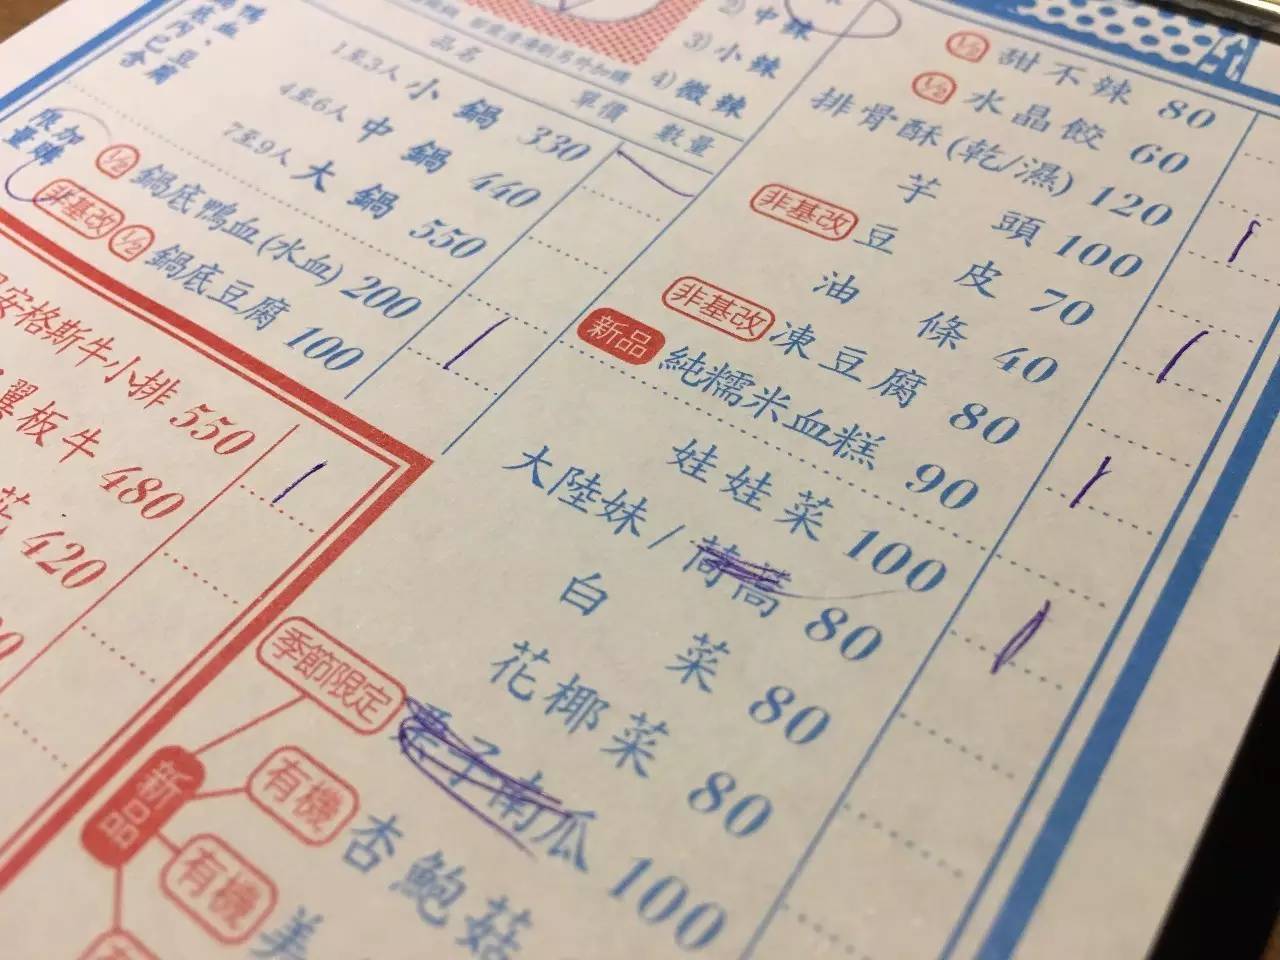 鴨血、豆腐
底內已含
限加
量購
品名 單價 數量
1至3人 小鍋 330
4至6人 中鍋 440
7至9人 大鍋 550
1/2 鍋底鴨血(水血) 200
非基改 1/2 鍋底豆腐 100
2) 中辣
3) 小辣
4) 微辣
安格斯牛小排 550
翼板牛 480
420
1/2 甜不辣 80
1/2 水晶餃 60
排骨酥(乾/濕) 120
芋頭 100
非基改 豆皮 70
油條 40
非基改 凍豆腐 80
新品 純糯米血糕 90
娃娃菜 100
大陸妹/茼蒿 80
白菜 80
花椰菜 80
季節限定 栗子南瓜 100
新品
有機 杏鮑菇
有機 美